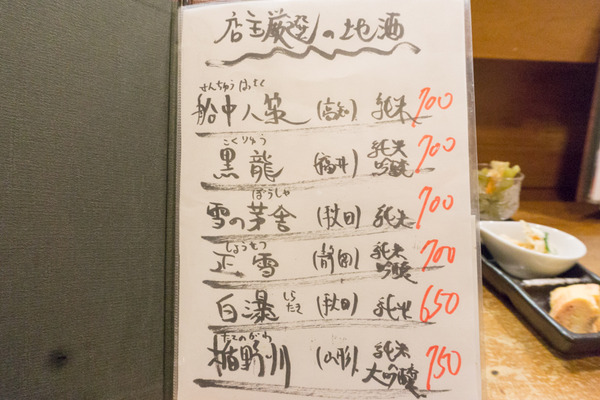 店主厳選の地酒
せんちゅうはっさく
船中八策 (高知) 純米 700
こくりゅう
黒龍 (福井) 純米吟醸 700
ぼうしゃ
雪の茅舎 (秋田) 純米 700
しょうせつ
正雪 (静岡) 純米吟醸 700
白瀑 しらたき (秋田) 純米 650
たてのがわ
楯野川 (山形) 純米大吟醸 750